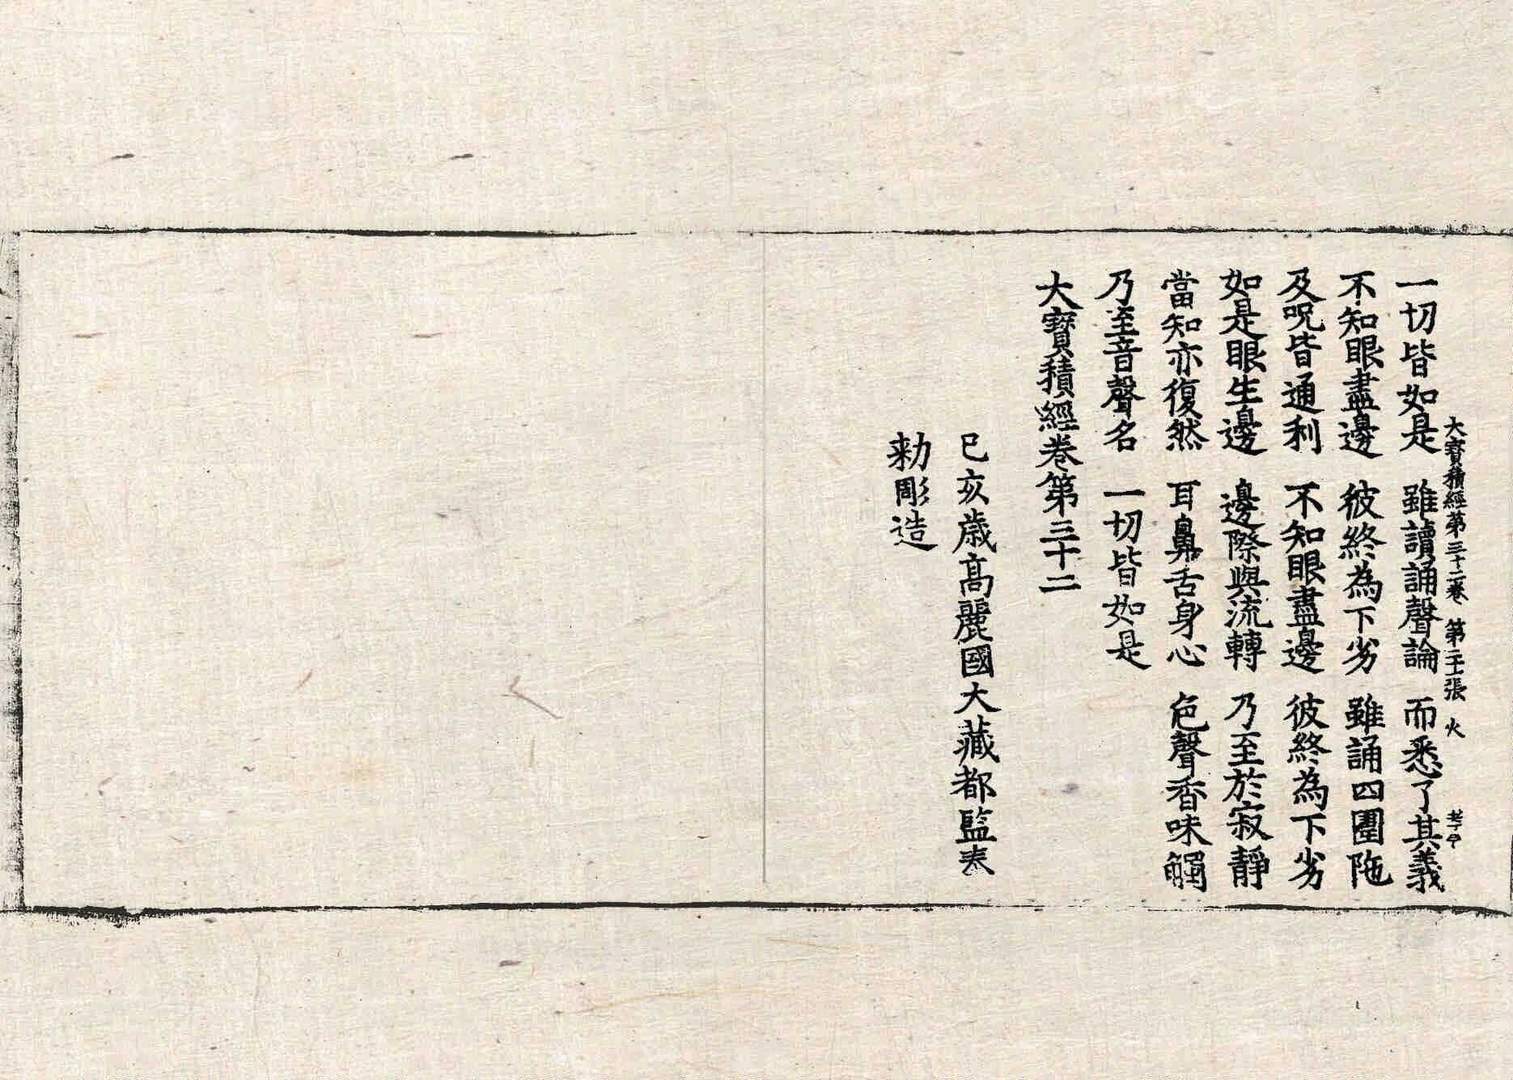 大寶積經第三十二卷 第二十張 火
一切皆如是 雖讀誦聲論 而悉了其義
不知眼盡邊 彼終為下劣 雖誦四圍陁
及呪皆通利 不知眼盡邊 彼終為下劣
如是眼生邊 邊際與流轉 乃至於寂靜
當知亦復然 耳鼻舌身心 色聲香味觸
乃至音聲名 一切皆如是
大寶積經卷第三十二
己亥歲高麗國大藏都監奉
勅彫造